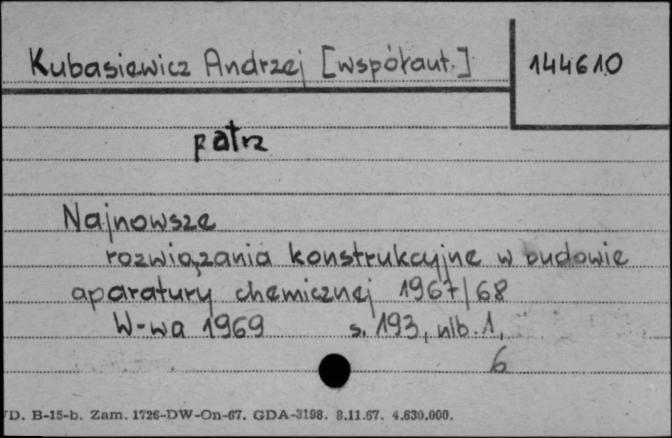 Kubasiewicz Andrzej [współaut.] 144610
patrz
Najnowsze
rozwiązania konstrukcyjne w budowie
aparatury chemicznej 1967/68
W-wa 1969 s. 193, nlb. 1,
6
D. B-15-b. Zam. 1726-DW-On-67. GDA-3198. 8.11.67. 4.630.000.